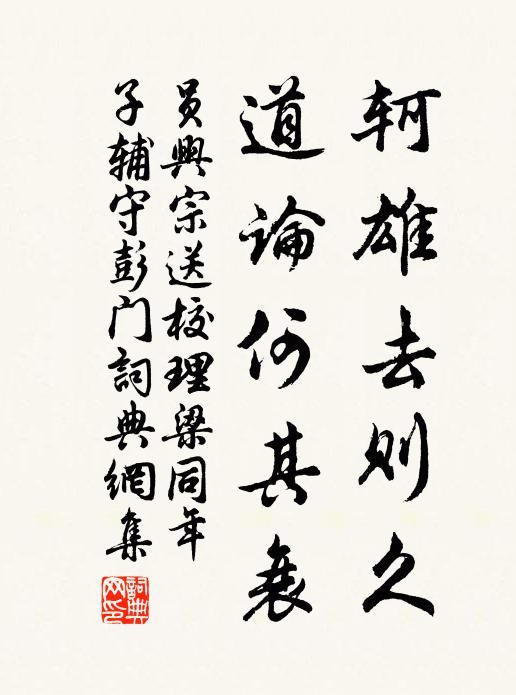 轲雄去则久
道論何其衰
员興宗送校理梁同年
子辅守彭门詞典網集
詞典網印